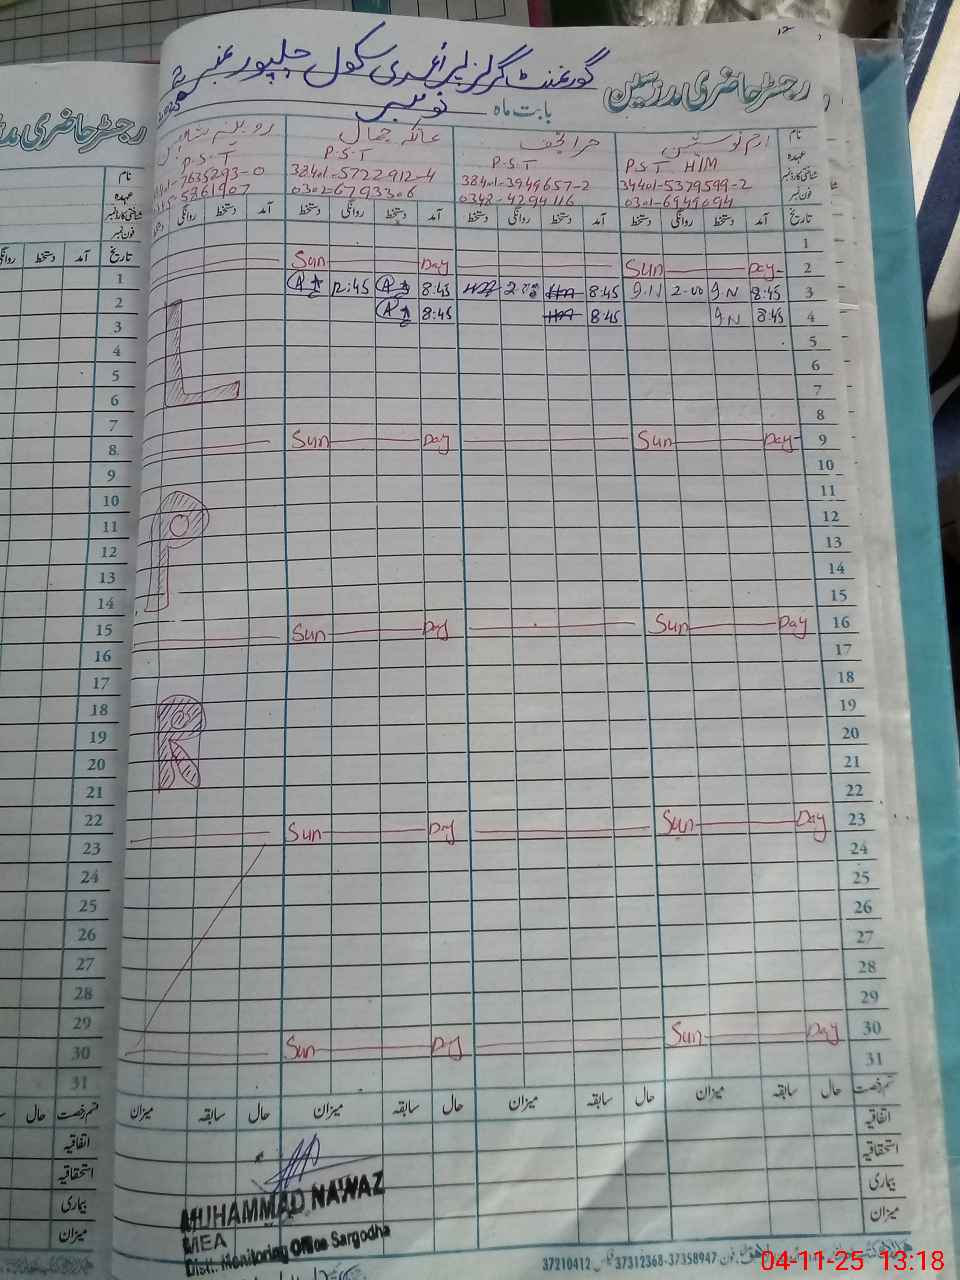 رجسٹر حاضری مدرسین گورنمنٹ گرلز پرائمری سکول
بابت ماہ نومبر
نام
P.S.T HIM P.S.T P.S.T P.S.T
عہدہ
شناختی کارڈ نمبر 34401-5379599-2 38401-3949657-2 38401-5722912-4
فون نمبر 0301-6949094 0348-4294116 0302-6793306
تاریخ آمد دستخط روانگی دستخط آمد دستخط روانگی دستخط آمد دستخط روانگی دستخط
1
2 Sun Day Sun Day
3 8:45 9.N 2-00 9.N 8:45 2.00 8:45 12:45
4 8:45 9N 8:45 8:45
5
6
7
8
9 Sun Day Sun Day
10
11
12
13
14
15
16 Sun Day Sun Day
17
18
19
20
21
22
23 Sun Day Sun Day
24
25
26
27
28
29
30 Sun Day Sun Day
31
L
P
R
قسم رخصت حال سابقہ میزان حال سابقہ میزان حال سابقہ میزان حال سابقہ میزان
اتفاقیہ
استحقاقیہ
بیماری
میزان
MUHAMMAD NAWAZ
MEA
Distt. Monitoring Office Sargodha
37210412 37312368-37358947 فون
رجسٹر حاضری
نام
عہدہ
شناختی کارڈ نمبر
فون نمبر
تاریخ آمد دستخط روانگی
1
2
3
4
5
6
7
8
9
10
11
12
13
14
15
16
17
18
19
20
21
22
23
24
25
26
27
28
29
30
31
قسم رخصت حال
اتفاقیہ
استحقاقیہ
بیماری
میزان
04-11-25 13:18